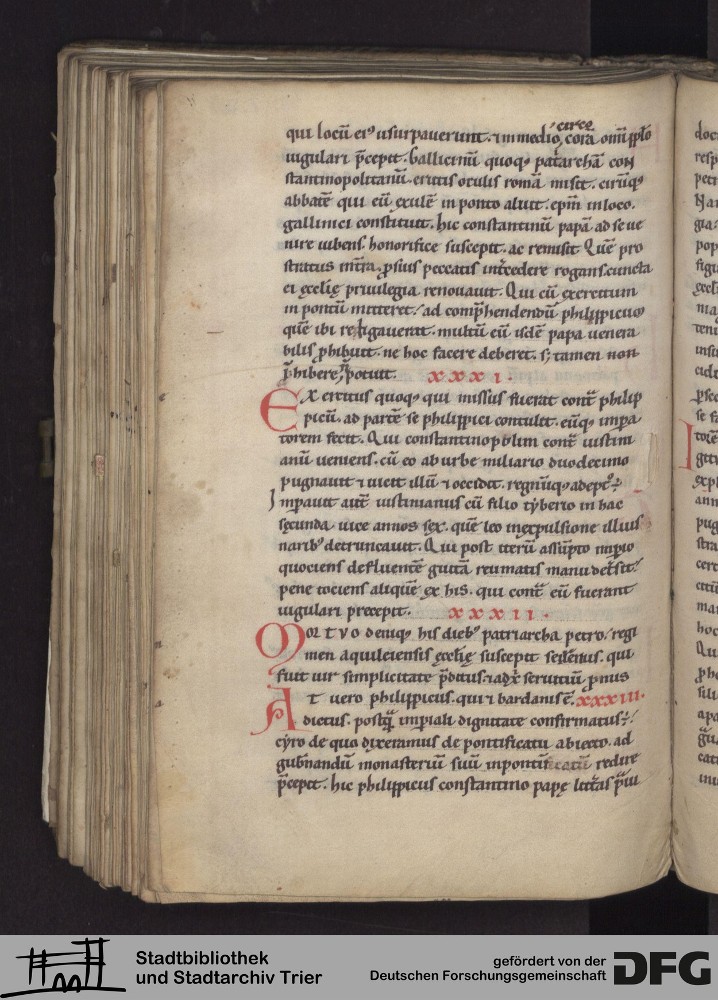 circo
qui locū ei⁹ usurpauerunt. ⁊ in medio, corā omī pp̄lo
iugulari p̄cepit. Gallicinū quoq; patarchā con
stantinopolitanū. erutis oculis romā misit. cirūq;
abbatē qui eū exulē in ponto aluit. ep̄m in loco.
gallinici constituit. hic constantinū papā ad se ue
nire iubens. honorifice suscepit. ac remisit. Quē pro
stratus in t̄ra. p̄ suis peccatis int̄cedere rogans. cuncta
ei ęcclię priuilegia renouauit. Qui cū exercitum
in pontū mitteret. ad comp̄hendendū philippicum
quē ibi religauerat. multū eū isdē papa uenera
bilis p̄hibuit. ne hoc facere deberet. s; tamen non
p̄hibere potuit. xxxi.
Exercitus quoq; qui missus fuerat cont̄ philip
picū. ad partē se philippici contulit. eūq; impa
torem fecit. Qui constantinopolim cont̄ iustini
anū ueniens. cū eo ab urbe miliario duodecimo
pugnauit ⁊ uicit illū ⁊ occidit. regnūq; adept⁹ ÷
Impauit autē iustinianus cū filio tyberio in hac
sęcunda uice annos sex. quē leo in expulsione illius
narib; detruncauit. Qui post iterū assūpto impio
quociens defluentē guttā reumatis manu det̄sit.
pene tociens aliquē ex his. qui cont̄ eū fuerant
iugulari precepit. xxxii.
Mortuo deniq; his dieb; patriarcha petro. regi
men aquileiensis ęcclię suscepit serenus. qui
fuit uir simplicitate p̄ditus. ⁊ ad x̄p̄i seruitiū p̄nus
At uero philippicus. qui ⁊ bardanis ē. xxxiii.
dictus. postq̄ impiali dignitate confirmatus ÷
cyro de quo dixeramus de pontificatu abiecto. ad
gub̄nandū monasteriū suū in pontificatū redire
p̄cepit. hic philippicus constantino papę litt̄as p̄ui
Stadtbibliothek
und Stadtarchiv Trier
gefördert von der
Deutschen Forschungsgemeinschaft
DFG